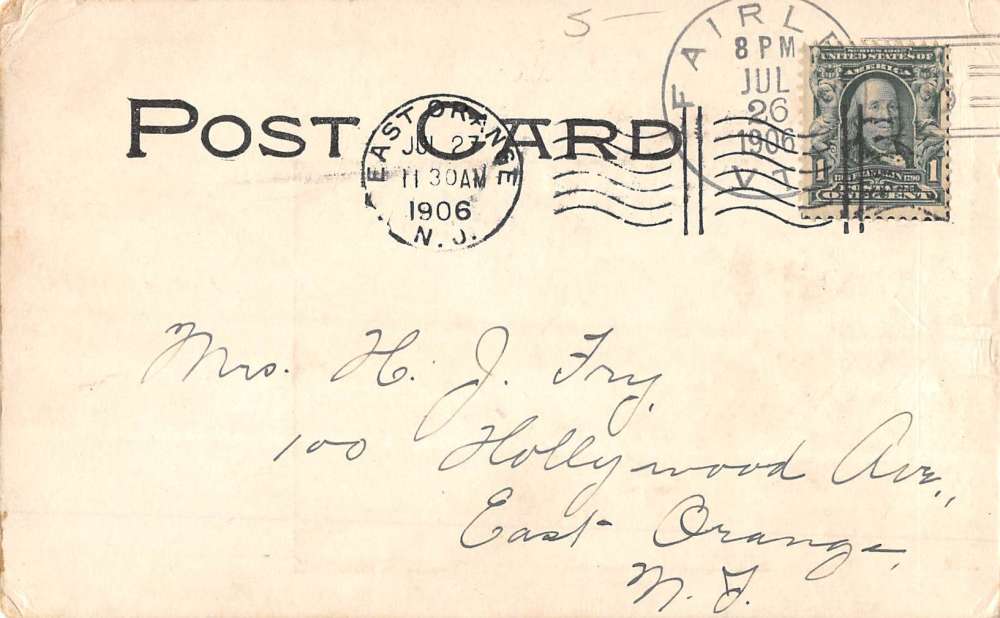 5-
POST CARD
FAIRLE
8 PM
JUL
26
1906
VT.
EAST ORANGE
JUL 27
11 30 AM
1906
N. J.
SERIES 1902
UNITED STATES OF
AMERICA
1 1
FRANKLIN 1790
POSTAGE
ONE CENT
Mrs. H. J. Fry,
100 Hollywood Ave.,
East Orange,
N. J.